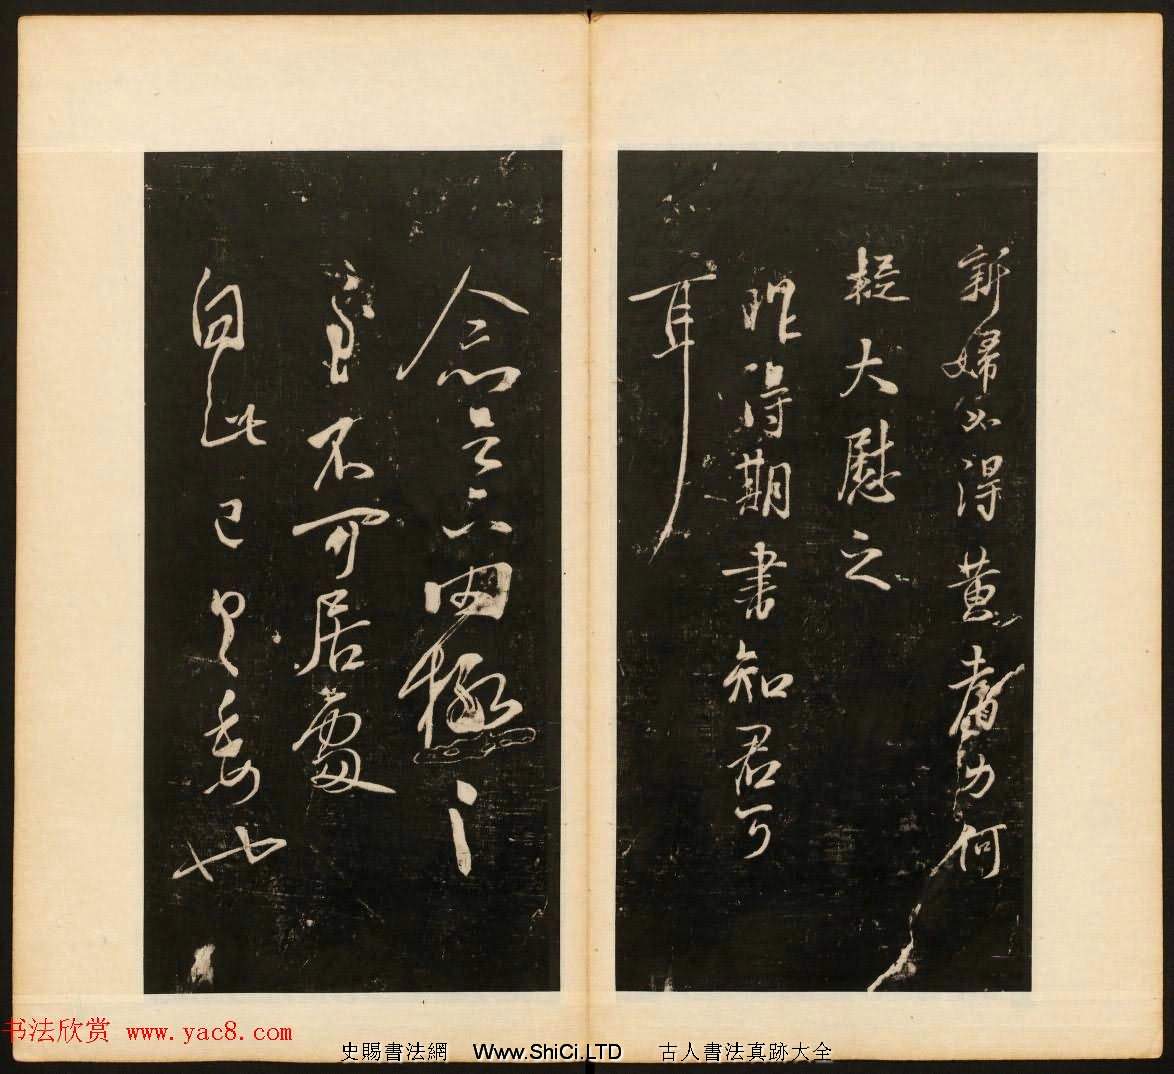 新婦必得黃耆力何
擬大慰之
昨得期書知君可
耳
念云六四極之
不可居處
白此已具委也
书法欣赏 www.yac8.com
史賜書法網 Www.ShiCi.LTD 古人書法真跡大全